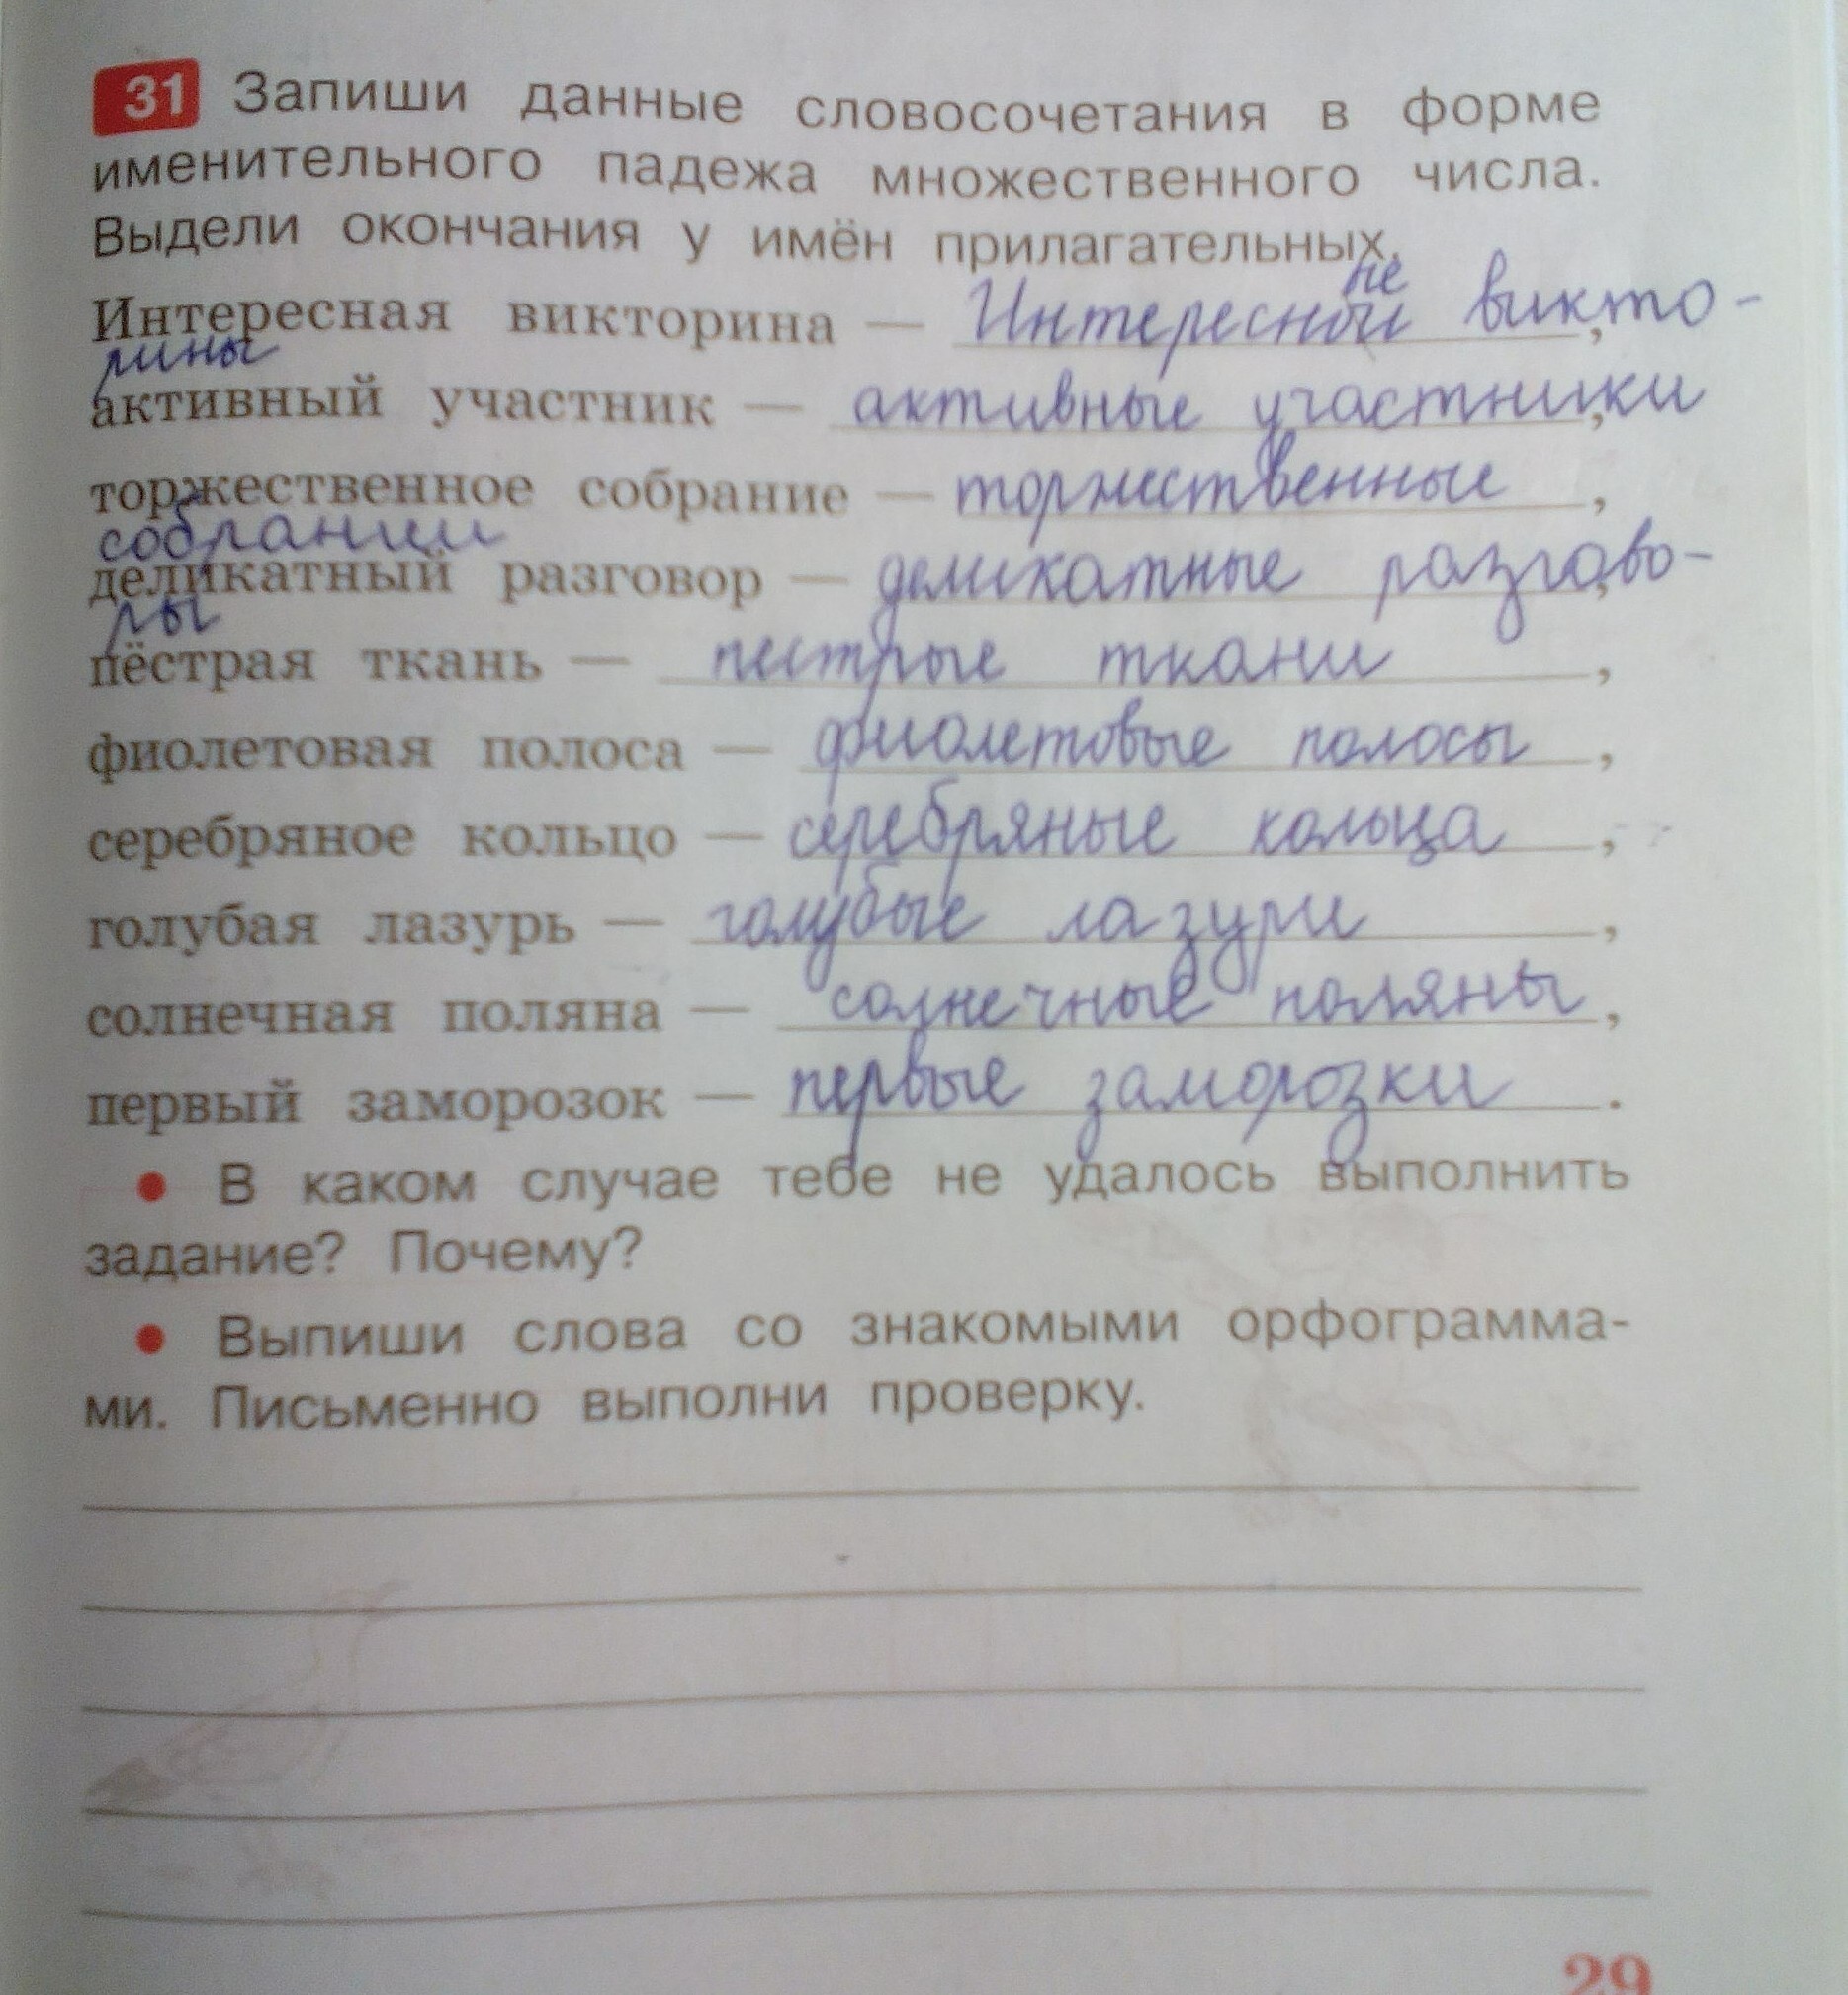 31 Запиши данные словосочетания в форме
именительного падежа множественного числа.
Выдели окончания у имён прилагательных.
Интересная викторина — Интересные викто-
рины
активный участник — активные участники,
торжественное собрание — торжественные,
собрании
деликатный разговор — деликатные разгово-
ры
пёстрая ткань — пестрые ткани,
фиолетовая полоса — фиолетовые полосы,
серебряное кольцо — серебряные кольца,
голубая лазурь — голубые лазури,
солнечная поляна — солнечные поляны,
первый заморозок — первые заморозки.
• В каком случае тебе не удалось выполнить
задание? Почему?
• Выпиши слова со знакомыми орфограмма-
ми. Письменно выполни проверку.
29